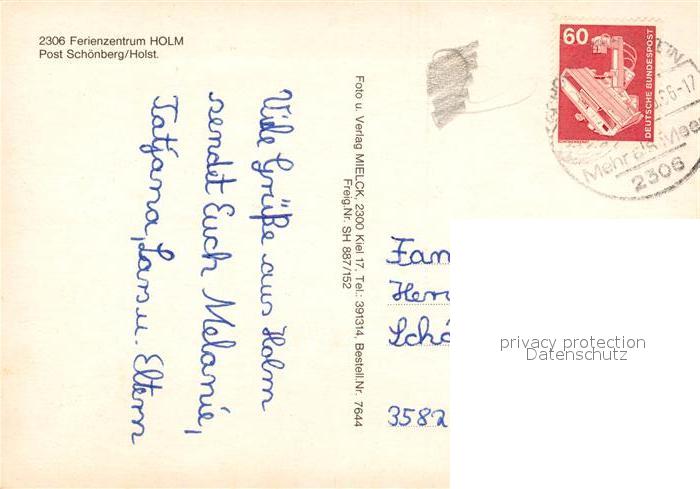 2306 Ferienzentrum HOLM
Post Schönberg/Holst.
Viele Grüße aus Holm
sendet Euch Melanie,
Tatjana, Lars u. Eltern
Foto u. Verlag MIELCK, 2300 Kiel 17. Tel.: 391314, Bestell.Nr. 7644
Freig.Nr. SH 887/152
60
DEUTSCHE BUNDESPOST
86-17
Mehr als Meer
2306
Fam
Her
Schö
3582
privacy protection
Datenschutz